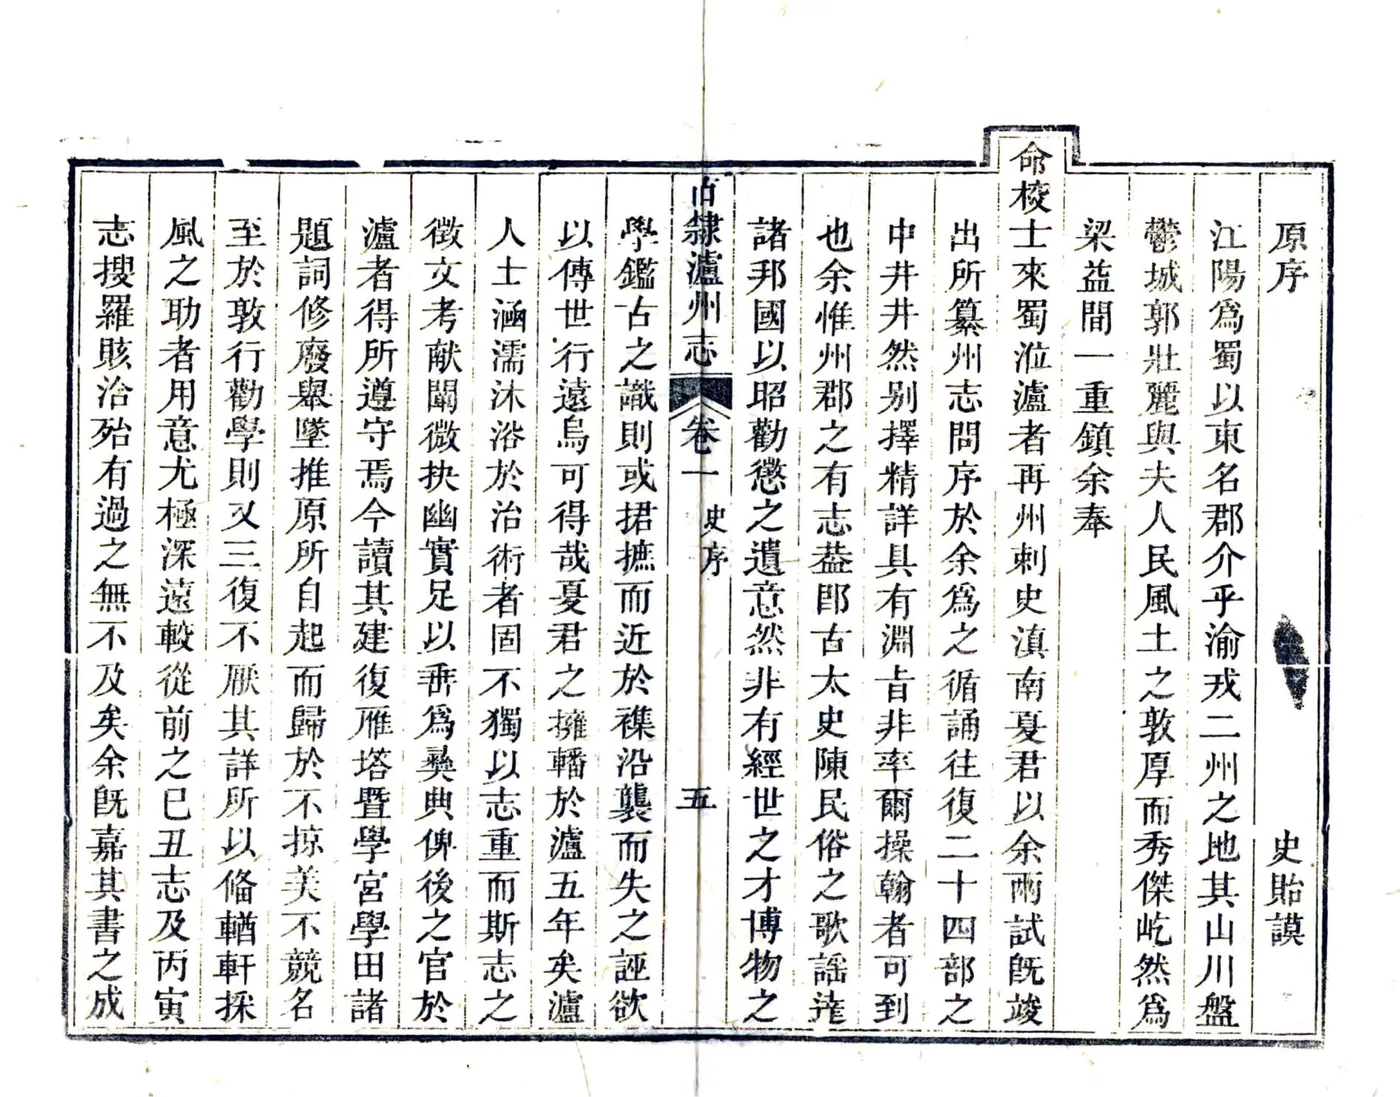 原序　史貽謨
江陽爲蜀以東名郡介乎渝戎二州之地其山川盤
鬱城郭壯麗與夫人民風土之敦厚而秀傑屹然爲
梁益間一重鎮余奉
命校士來蜀涖瀘者再州刺史滇南夏君以余兩試旣竣
出所纂州志問序於余爲之循誦往復二十四部之
中井井然别擇精詳具有淵旨非率爾操翰者可到
也余惟州郡之有志葢卽古太史陳民俗之歌謡達
諸邦國以昭勸懲之遺意然非有經世之才博物之
直隸瀘州志　卷一　史序　五
學鑑古之識則或捃摭而近於襍沿襲而失之誣欲
以傳世行遠烏可得哉夏君之擁轓於瀘五年矣瀘
人士涵濡沐浴於治術者固不獨以志重而斯志之
徵文考献闡微抉幽實足以垂爲彜典俾後之官於
瀘者得所遵守焉今讀其建復雁塔暨學宮學田諸
題詞修廢舉墜推原所自起而歸於不掠美不競名
至於敦行勸學則又三復不厭其詳所以偹輶軒採
風之助者用意尤極深遠較從前之巳丑志及丙寅
志搜羅賅洽殆有過之無不及矣余旣嘉其書之成